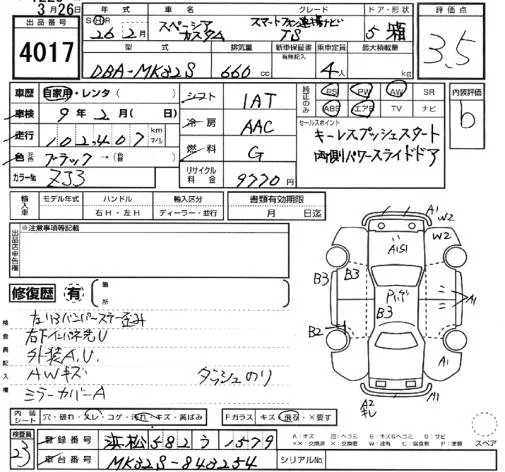 3月26日
出品番号
4017
年式 車名 グレード ドア・形状
26年2月 スペーシアカスタム スマートフォン連携ナビ TS 5 箱
型式 排気量 新車保証書 有無記入 乗車定員 最大積載量
DBA-MK32S 660cc 4人 kg
評価点
3.5
内装評価
b
車歴 自家用・レンタ( )
車検 9年2月( 日)
走行 102,407 km マイル
色 ブラック→( )
カラーNo. ZJ3
シフト 1AT
冷房 AAC
燃料 G
リサイクル料金 9770円
純正のみ PS PW AW SR
ABS エアB TV ナビ
セールスポイント
キーレスプッシュスタート
両側パワースライドドア
輸入車 モデル年式 ハンドル 輸入区分 書類有効期限
年 右H・左H ディーラー・並行 月 日迄
出品店申告欄
※注意事項等記載
修復歴 有 箇所
検査員記入欄
外装A.U.
AWキズ ダッシュのり
ミラーカバーA
A1 W2
W2
A1S1
B3 B3
B3
A1
B2
A1
A2
内装シート 穴・破れ・スレ・コゲ・汚れ・キズ・黄ばみ Fガラス キズ・飛石・×要す
A:キズ U:ヘコミ B:キズ&ヘコミ S:サビ
スペア
検査員
23
登録番号 浜松 582 う 1579
車台番号 MK32S-848254 シリアルNo.